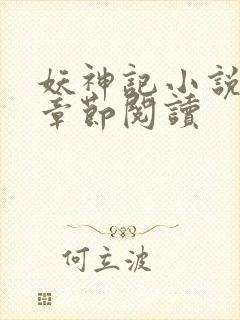 妖神記小説
章節閱讀
何立波